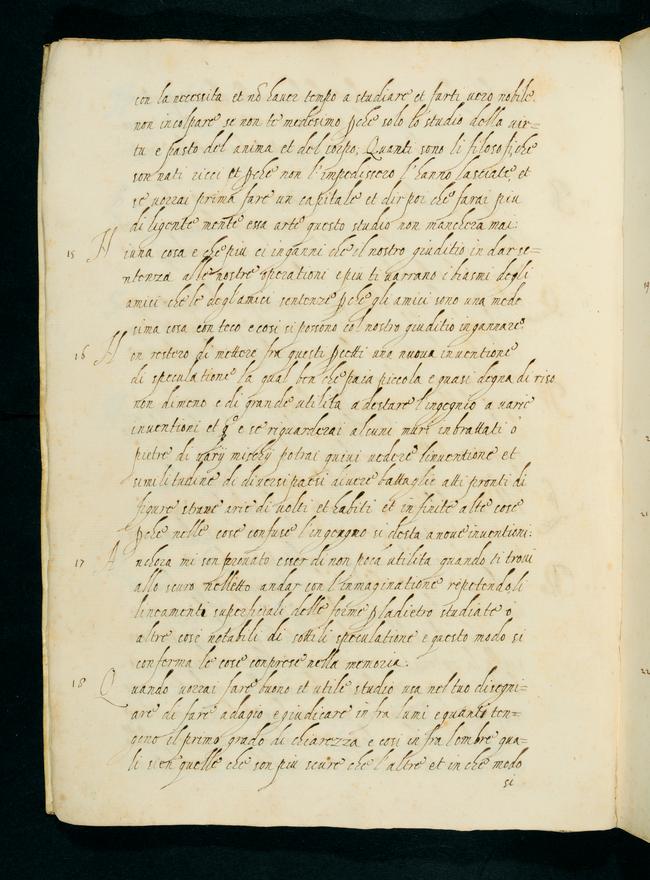 con la necessita et nō haver tempo a studiare et farti vero nobile
non incolpare se non te medesimo pche solo lo studio della vir=
tu e pasto del anima et del corpo, Quanti sono li filosofi, che
son nati ricci et pche non l'impedissero l'hanno lasciate et
se vorrai prima fare un capitale et dir poi che farai piu
diligente mente essa arte questo studio non manchera mai:
15 Niuna cosa e che piu ci inganni che il nostro giuditio in dar se=
ntenza alle nostre operationi e piu ti varrano i biasmi degli
amici che le degl amici sentenze pche gli amici sono una mede
sima cosa con teco e cosi si possono col nostro giuditio ingannare.
16 Non restero di mettere fra questi pcetti una nuova inventione
di speculatione la qual ben che paia piccola e quasi degna di riso
non dimeno e di grande utilita a destare l'ingegnio a varie
inventioni et e se riguarderai alcuni muri inbrattati o
pietre di varÿ misciÿ potrai quivi vedere l'inventione et
similitudine di diversi paesi aivere battaglie atti pronti di
figure strane arie di volti et habiti et infinite altre cose
pche nelle cose confuse l'ingengno si desta a nove inventioni:
17 Anchora mi son provato esser di non poca utilita quando ti trovi
allo scuro nelletto andar con l'inmaginatione repetendo li
lineamenti superficiali delle forme p ladietro studiate o
altre cose notabili di sottili speculatione e questo modo si
conferma le cose conprese nella memoria:
18 Quando vorrai fare buono et utile studio usa nel tuo disegni=
are di fare adagio e giudicare in fra lumi e quanto ten=
geno il primo grado di chiarezza e cosi in fra l'ombre qua=
li sien quelle che son piu scure che l'altre et in che modo
si